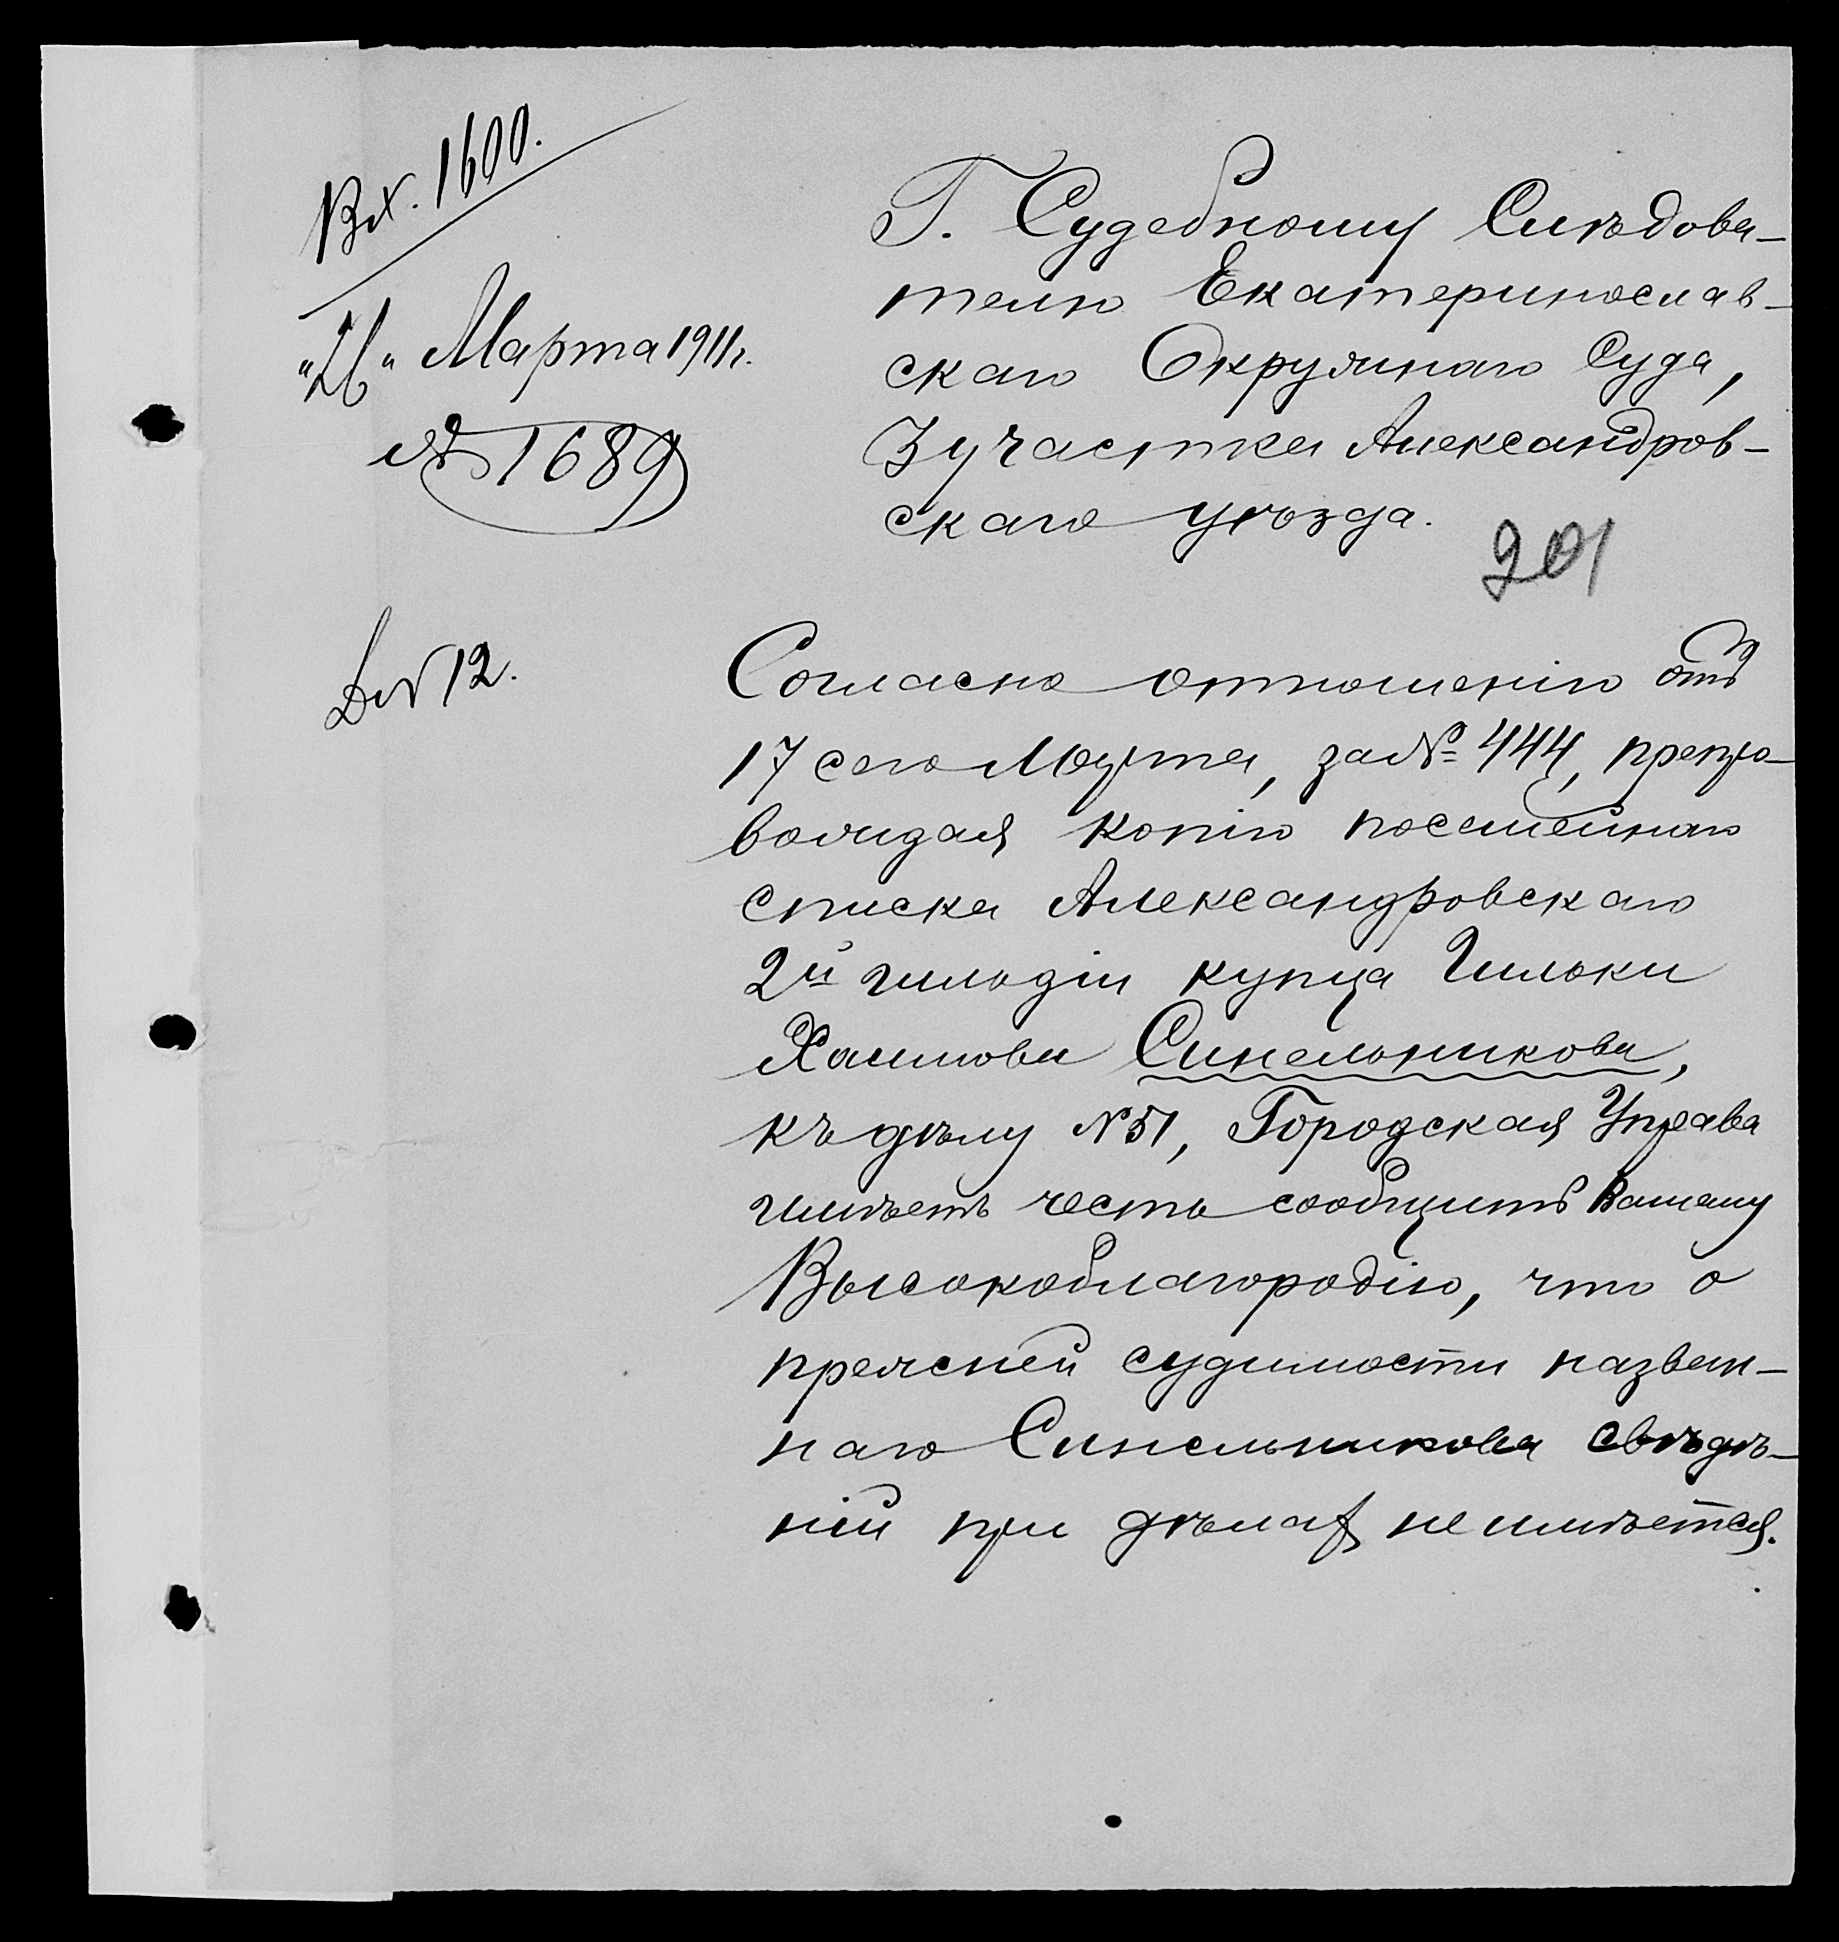 Вх. 1600.
"26" Марта 1911 г.
№ 1689
Г. Судебному Слѣдова-
телю Екатеринослав-
скаго Окружнаго Суда,
3 участка Александров-
скаго уѣзда.
201
12.
Согласно отношенію отъ
17 сего Марта, за № 444, препро-
вождая копію посемейнаго
списка Александровскаго
2й гильдіи купца Гильки
Хаимова Синельникова,
къ дѣлу № 51, Городская Управа
имѣетъ честь сообщить Вашему
Высокоблагородію, что о
прежней судимости назван-
наго Синельникова свѣдѣ-
ній при дѣлахъ не имѣется.